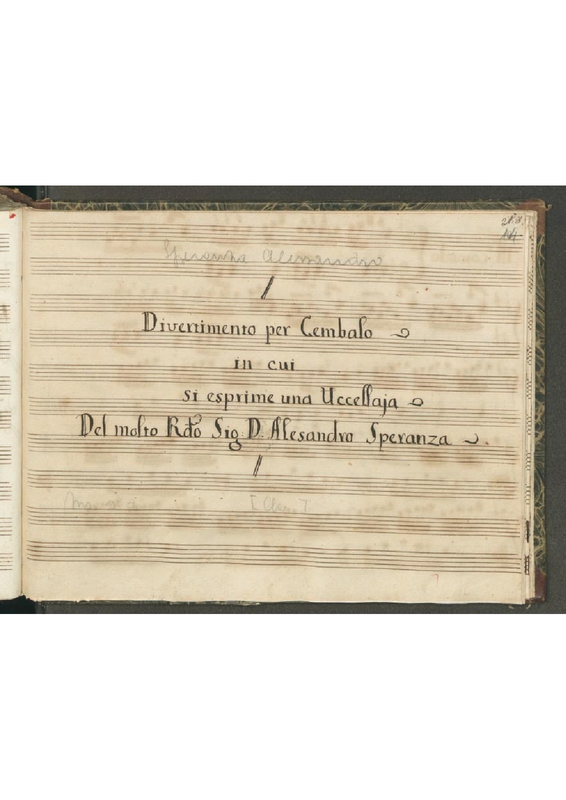 Speranza Alessandro
Divertimento per Cembalo
in cui
si esprime una Uccellaja
Del molto Rdo Sig D. Alesandro Speranza